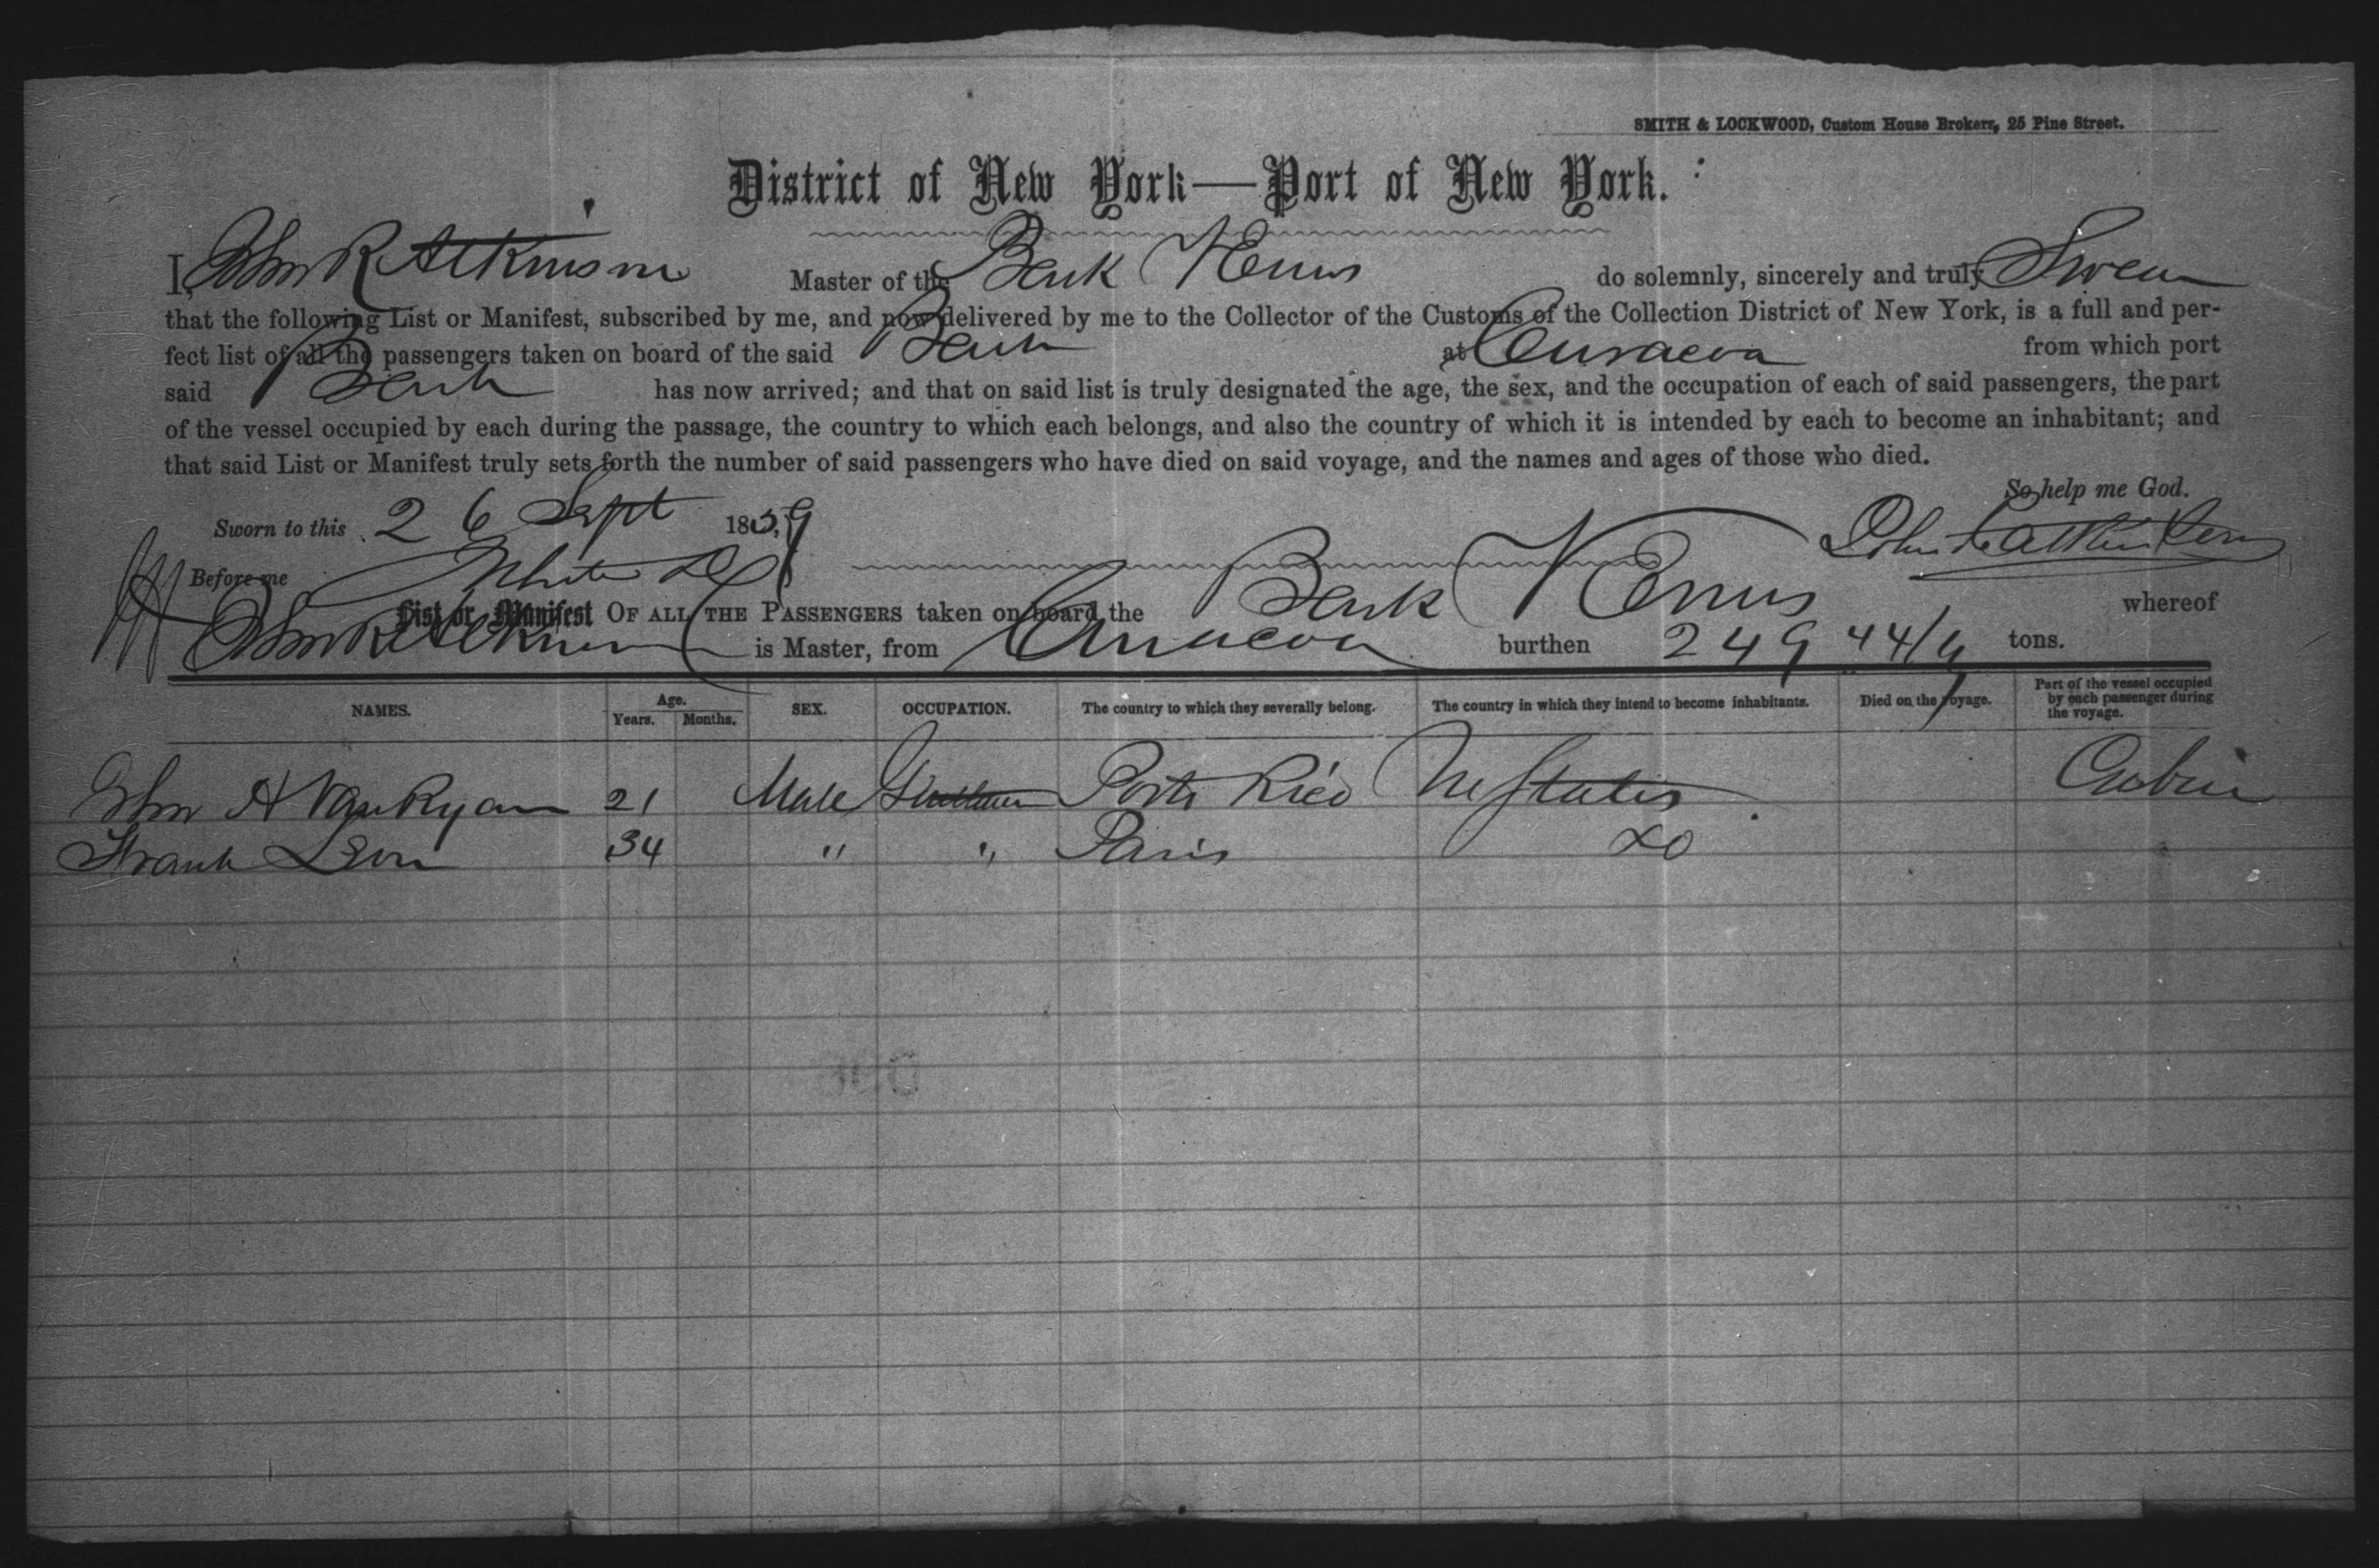 SMITH & LOCKWOOD, Custom House Brokers, 25 Pine Street.
District of New York—Port of New York.
I, John R Atkinson Master of the Bark Venus do solemnly, sincerely and truly Swear
that the following List or Manifest, subscribed by me, and now delivered by me to the Collector of the Customs of the Collection District of New York, is a full and per-
fect list of all the passengers taken on board of the said Bark at Curacoa from which port
said Bark has now arrived; and that on said list is truly designated the age, the sex, and the occupation of each of said passengers, the part
of the vessel occupied by each during the passage, the country to which each belongs, and also the country of which it is intended by each to become an inhabitant; and
that said List or Manifest truly sets forth the number of said passengers who have died on said voyage, and the names and ages of those who died.
So help me God.
Sworn to this 26 Sept 1859 John R Atkinson
Before me
List or Manifest OF ALL THE PASSENGERS taken on board the Bark Venus whereof
John R Atkinson is Master, from Curacoa burthen 249 44/ tons.
NAMES. Age. Years. Months. SEX. OCCUPATION. The country to which they severally belong. The country in which they intend to become inhabitants. Died on the voyage. Part of the vessel occupied by each passenger during the voyage.
John A Van Ryan 21 Male Gentleman Porto Rico States Cabin
Frank Leon 34 " " Paris Do